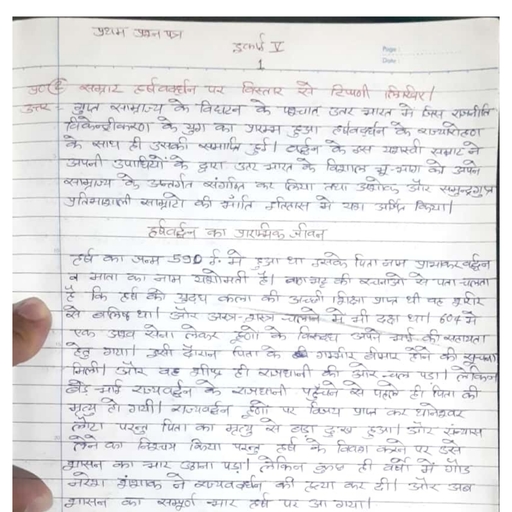 प्रथम प्रश्न पत्र
इकाई V
Page :
Date :
1
सम्राट हर्षवर्धन पर विस्तार से टिप्पणी लिखिए।
उत्तर - गुप्त साम्राज्य के विघटन के पश्चात उत्तर भारत में जिस राजनीति
विकेन्द्रीकरण के युग का प्रारम्भ हुआ हर्षवर्धन के राज्यारोहण
के साथ ही उसकी समाप्ति हुई। वर्द्धन के इस यशस्वी सम्राट ने
अपनी उपाधियों के द्वारा उत्तर भारत के विशाल भू-भाग को अपने
साम्राज्य के अन्तर्गत संगठित कर लिया तथा अशोक और समुद्रगुप्त
प्रतिभाशाली सम्राटों की भाँति इतिहास में यश अर्जित किया।
हर्षवर्द्धन का प्रारम्भिक जीवन
हर्ष का जन्म 590 ई. में हुआ था उसके पिता नाम प्रभाकरवर्द्धन
व माता का नाम यशोमती है। की रचनाओं से पता चलता
है कि हर्ष को युद्ध कला की अच्छी शिक्षा प्राप्त थी वह शरीर
से बलिष्ठ था। और अस्त्र-शस्त्र चलाने में भी था। 604 में
एक अश्व सेना लेकर हूणों के विरुद्ध अपने भाई की सहायता
हेतु गया। इसी दौरान पिता के गम्भीर बीमार होने की सूचना
मिली। और वह शीघ्र ही राजधानी की ओर चल पड़ा। लेकिन
बड़े भाई राज्यवर्द्धन के राजधानी पहुँचने से पहले ही पिता की
मृत्यु हो गयी। राज्यवर्द्धन हूणों पर विजय प्राप्त कर थानेश्वर
लौटा परन्तु पिता का मृत्यु से बड़ा दुःख हुआ। और संन्यास
लेने का निश्चय किया परन्तु हर्ष के विवश करने पर उसे
शासन का भार उठाना पड़ा। लेकिन कुछ ही वर्षों में गौड़
नरेश शशांक ने राज्यवर्द्धन की हत्या कर दी। और अब
शासन का सम्पूर्ण भार हर्ष पर आ गया।